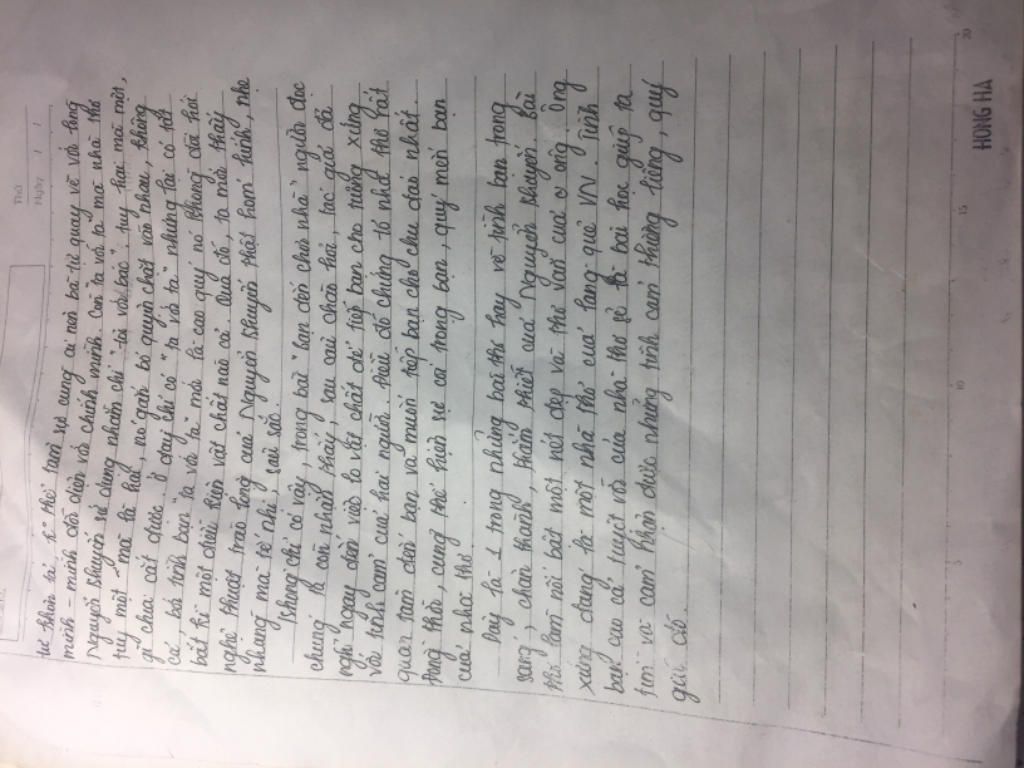 Thứ
Ngày
tự thoát tỏ thổ tâm sự cùng ai nỗi bà tự quay về với lòng
mình - mình đối diện với chính mình. Còn ta với ta mà nhà thơ
Nguyễn Khuyến sử dụng nhằm chỉ "tôi với bác", tuy hai mà một,
tuy một mà là hai, nó gắn bó quyện chặt với nhau, không
gì chia cắt được. ở đây chỉ có "ta với ta" nhưng lại có tất
cả, bởi tình bạn "ta với ta" mới là cao quý nó chẳng đòi hỏi
bất kì một điều kiện vật chất nào cả. Qua đó, ta mới thấy
nghệ thuật trào lộng của Nguyễn Khuyến thật hóm hỉnh, nhẹ
nhàng mà tế nhị, sâu sắc.
Không chỉ có vậy, trong bài "bạn đến chơi nhà" người đọc
chúng ta còn nhận thấy, sau cái chào hỏi, tác giả đã
nghĩ ngay đến việc lo vật chất để tiếp bạn cho tương xứng
với tình cảm của hai người. Điều đó chứng tỏ nhà thơ rất
quan tâm đến bạn và muốn tiếp bạn cho chu đáo nhất.
Ngoài ra, cũng thể hiện sự cả trọng bạn, quý mến bạn
của nhà thơ.
Đây là 1 trong những bài thơ hay về tình bạn trong
sáng, chân thành, thắm thiết của Nguyễn Khuyến. Bài
thơ làm nổi bật một nét đẹp về thơ văn của ông. Ông
xứng đáng là một nhà thơ của làng quê VN. Tình
bạn cao cả tuyệt vời của nhà thơ sẽ là bài học giúp ta
tìm và cảm nhận được những tình cảm thiêng liêng, quý
giá đó.
5 10 15 20
HONG HA